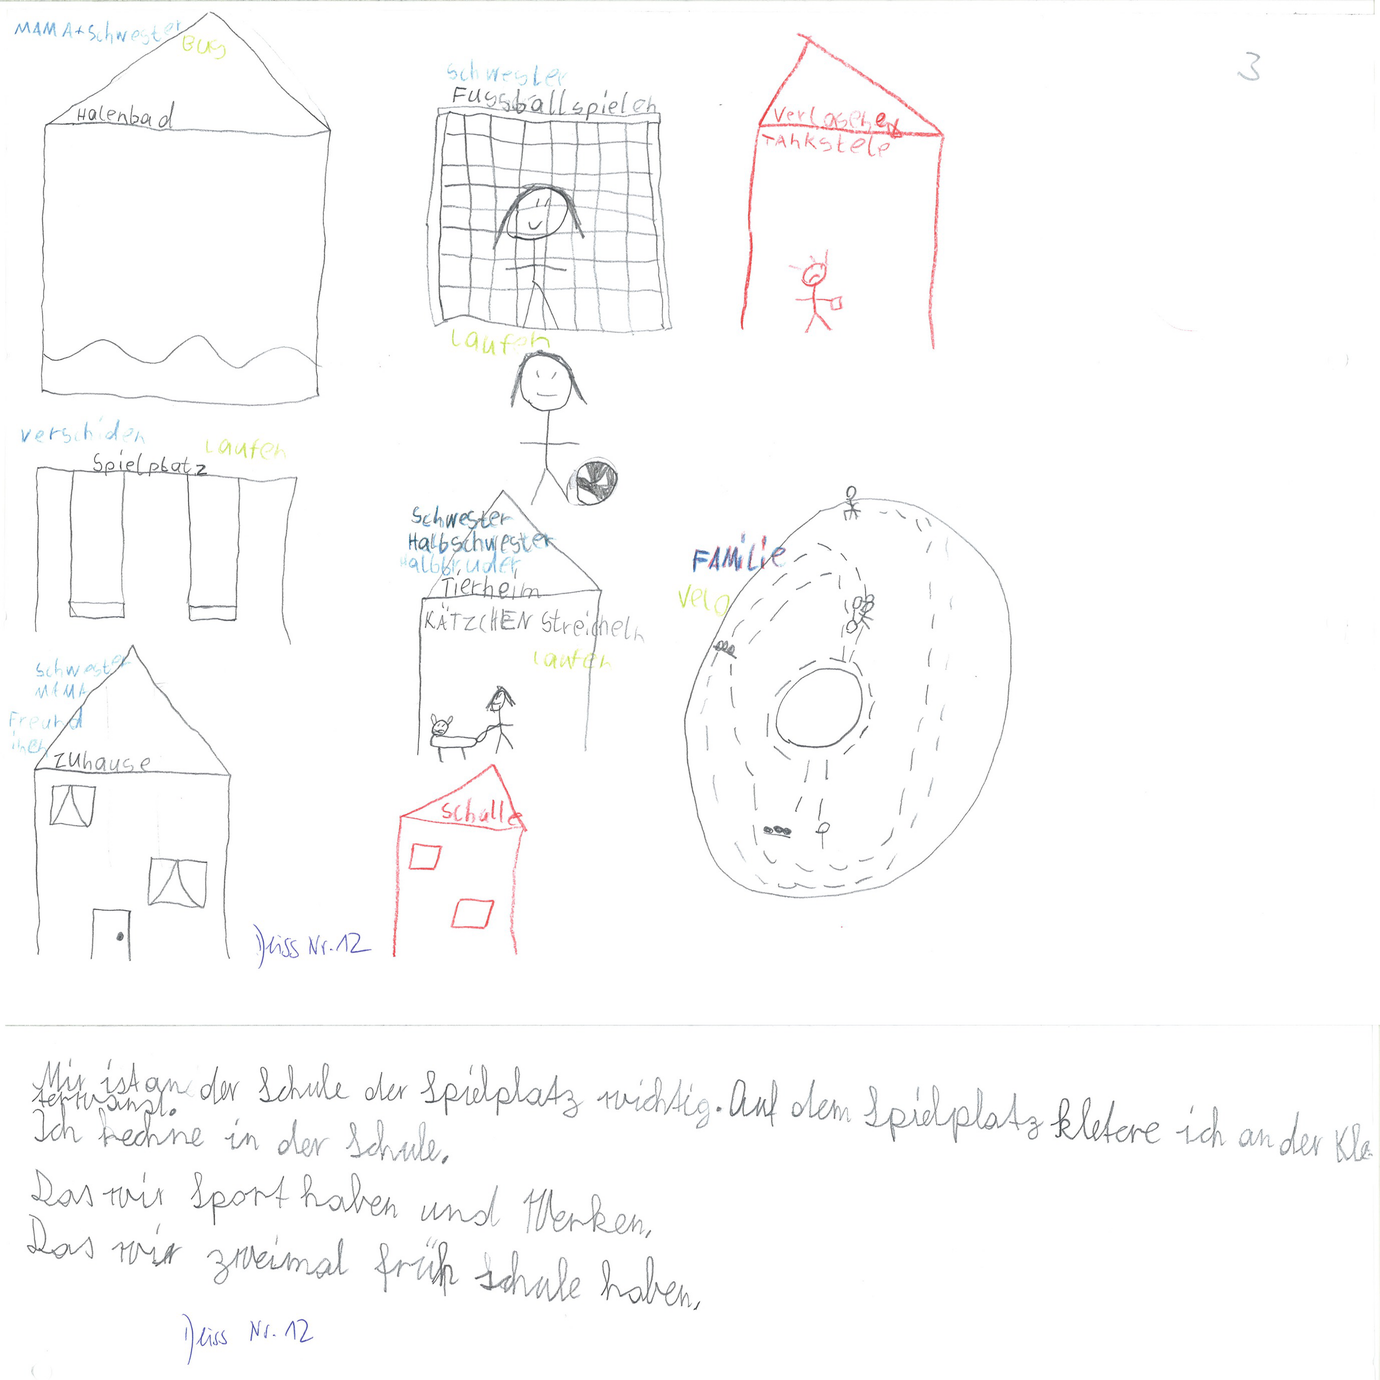 MAMA+Schwester
BUS
Halenbad
Schwester
Fussballspielen
Laufen
Verlasenen
TAnkstele
3
verschiden
Laufen
Spielplatz
Schwester
Halbschwester
Halbbruder
Tierheim
KÄTZCHEN Streicheln
Laufen
FAMiLie
Velo
Schwester
MAMA
Freund
inen
Zuhause
Schulle
Nr. 12
Mir ist an der Schule der Spielplatz wichtig. Auf dem Spielplatz kletere ich an der Kle-
terwand.
Ich rechne in der Schule.
Das wir Sport haben und Werken.
Das wir zweimal früh schule haben.
Nr. 12